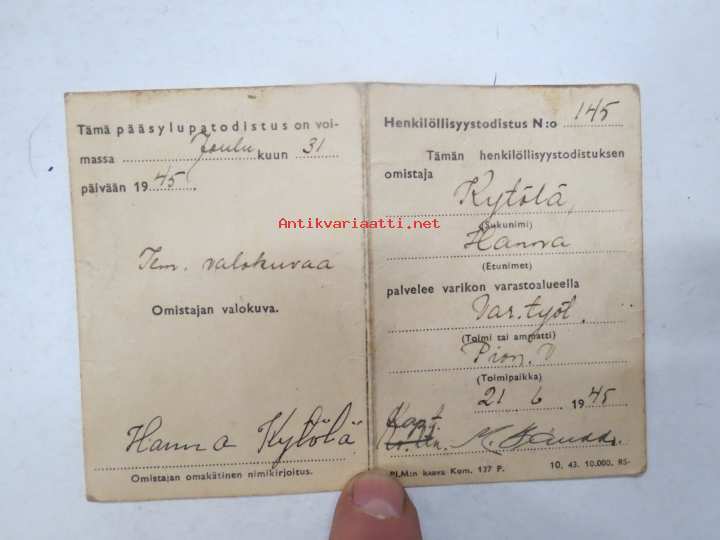 Tämä pääsylupatodistus on voi-
massa Joulu kuun 31
päivään 1945.
Antikvariaatti.net
valokuvaa
Omistajan valokuva.
Hanna Kytölä
Omistajan omakätinen nimikirjoitus.
Henkilöllisyystodistus N:o 145
Tämän henkilöllisyystodistuksen
omistaja
Kytölä,
(Sukunimi)
Hanna
(Etunimet)
palvelee varikon varastoalueella
Var.työl.
(Toimi tai ammatti)
Pion. V
(Toimipaikka)
21. 6 1945
Kapt.
Pl.M:n kaava Kom. 137 P. 10. 43. 10.000. RS-